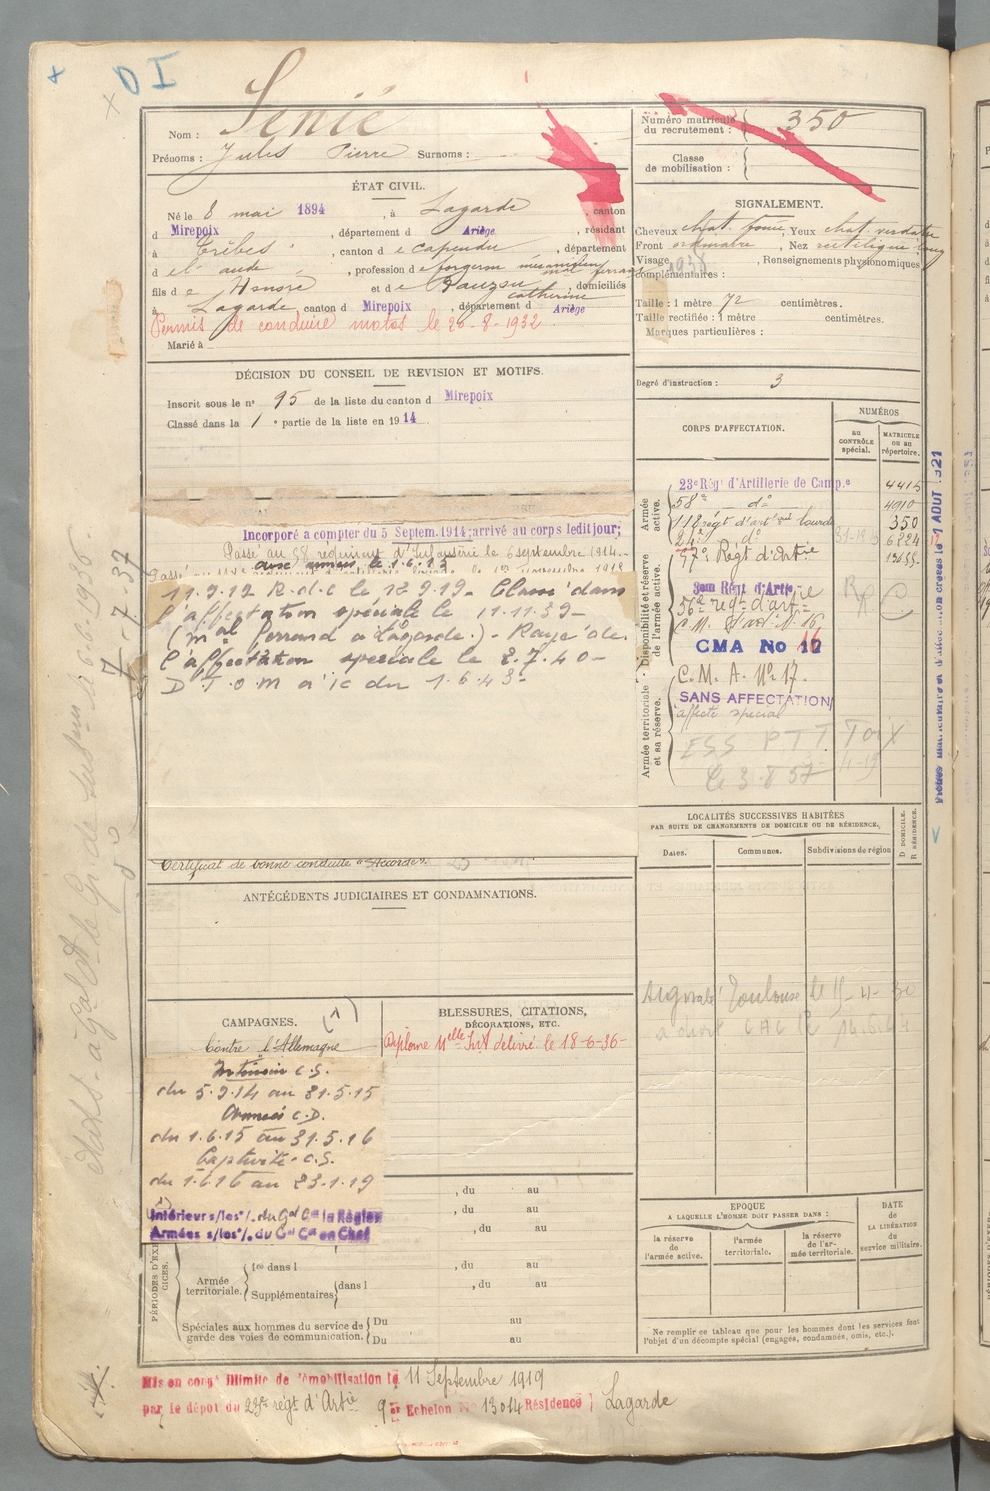 OI
Nom : Senié
Prénoms : Jules Pierre Surnoms :
Numéro matricule du recrutement : 350
Classe de mobilisation :
ÉTAT CIVIL.
Né le 8 mai 1894, à Lagarde, canton
d Mirepoix, département d Ariège, résidant
à Trèbes, canton de Capendu, département
de l'aude, profession de forgeron mécanicien
mal ferrant
fils de Honoré et de Rauzou catherine, domiciliés
à Lagarde, canton d Mirepoix, département d Ariège
Permis de conduire motos le 26-8-1932
Marié à
SIGNALEMENT.
Cheveux chat. foncé, Yeux chat. verdatre
Front ordinaire, Nez rectiligne long
Visage, Renseignements physionomiques
complémentaires :
Taille : 1 mètre 72 centimètres.
Taille rectifiée : 1 mètre centimètres.
Marques particulières :
Degré d'instruction : 3
DÉCISION DU CONSEIL DE REVISION ET MOTIFS.
Inscrit sous le n° 95 de la liste du canton d Mirepoix
Classé dans la 1e partie de la liste en 1914.
Incorporé à compter du 5 Septem. 1914; arrivé au corps ledit jour;
Passé au 58 régiment d'Infanterie le 6 septembre 1914.
aux armées le 1.6.15
11.9.19 R.d.c le 12.9.19- Classé dans
l'affectation spéciale le 11.11.39-
(mal ferrand a Lagarde.)- Rayé de
l'affectation speciale le 2.7.40-
D T O M à/c du 1.6.43-
Certificat de bonne conduite "Accordé".
CORPS D'AFFECTATION.
NUMÉROS
au CONTRÔLE spécial.
MATRICULE ou au répertoire.
Armée active.
23e Régt d'Artillerie de Camp.e 4415
58e d° 4910
118 régt d'arterie lourde 350
24e d° 6224
Disponibilité et réserve de l'armée active.
57e Régt d'Artie
Régt d'Artie
56e régt d'artie
C.M. d'art. N. 16
CMA No 16
Armée territoriale et sa réserve.
C. M. A. N° 17.
SANS AFFECTATION
affecté spécial
ESS PTT Foix
le 3.8.57
LOCALITÉS SUCCESSIVES HABITÉES
PAR SUITE DE CHANGEMENTS DE DOMICILE OU DE RÉSIDENCE.
Dates. Communes. Subdivisions de région
D DOMICILE.
R RÉSIDENCE.
ANTÉCÉDENTS JUDICIAIRES ET CONDAMNATIONS.
CAMPAGNES.
Contre l'Allemagne
Intérieur C.S.
du 5.9.14 au 31.5.15
Armées C.D.
du 1.6.15 au 31.5.16
Captivité C.S.
du 1.6.16 au 23.1.19
Intérieur s/les o/. du Gal Ct la Région
Armées s/les o/. du Gal Ct en Chef
BLESSURES, CITATIONS,
DÉCORATIONS, ETC.
Diplome Uelle Int délivré le 18-6-36-
, du au
, du au
, du au
Armée territoriale. 1re dans l , du au
Supplémentaires dans l , du au
Spéciales aux hommes du service de garde des voies de communication. Du au
Du au
EPOQUE
A LAQUELLE L'HOMME DOIT PASSER DANS :
la réserve de l'armée active.
l'armée territoriale.
la réserve de l'armée territoriale.
DATE
de
LA LIBÉRATION
du
service militaire.
Ne remplir ce tableau que pour les hommes dont les services font
l'objet d'un décompte spécial (engagés, condamnés, omis, etc.).
Mis en congé illimité de démobilisation le 11 Septembre 1919
par le dépôt du 23e régt d'Artie 9er Echelon No 13014 Résidence Lagarde
7-7-37